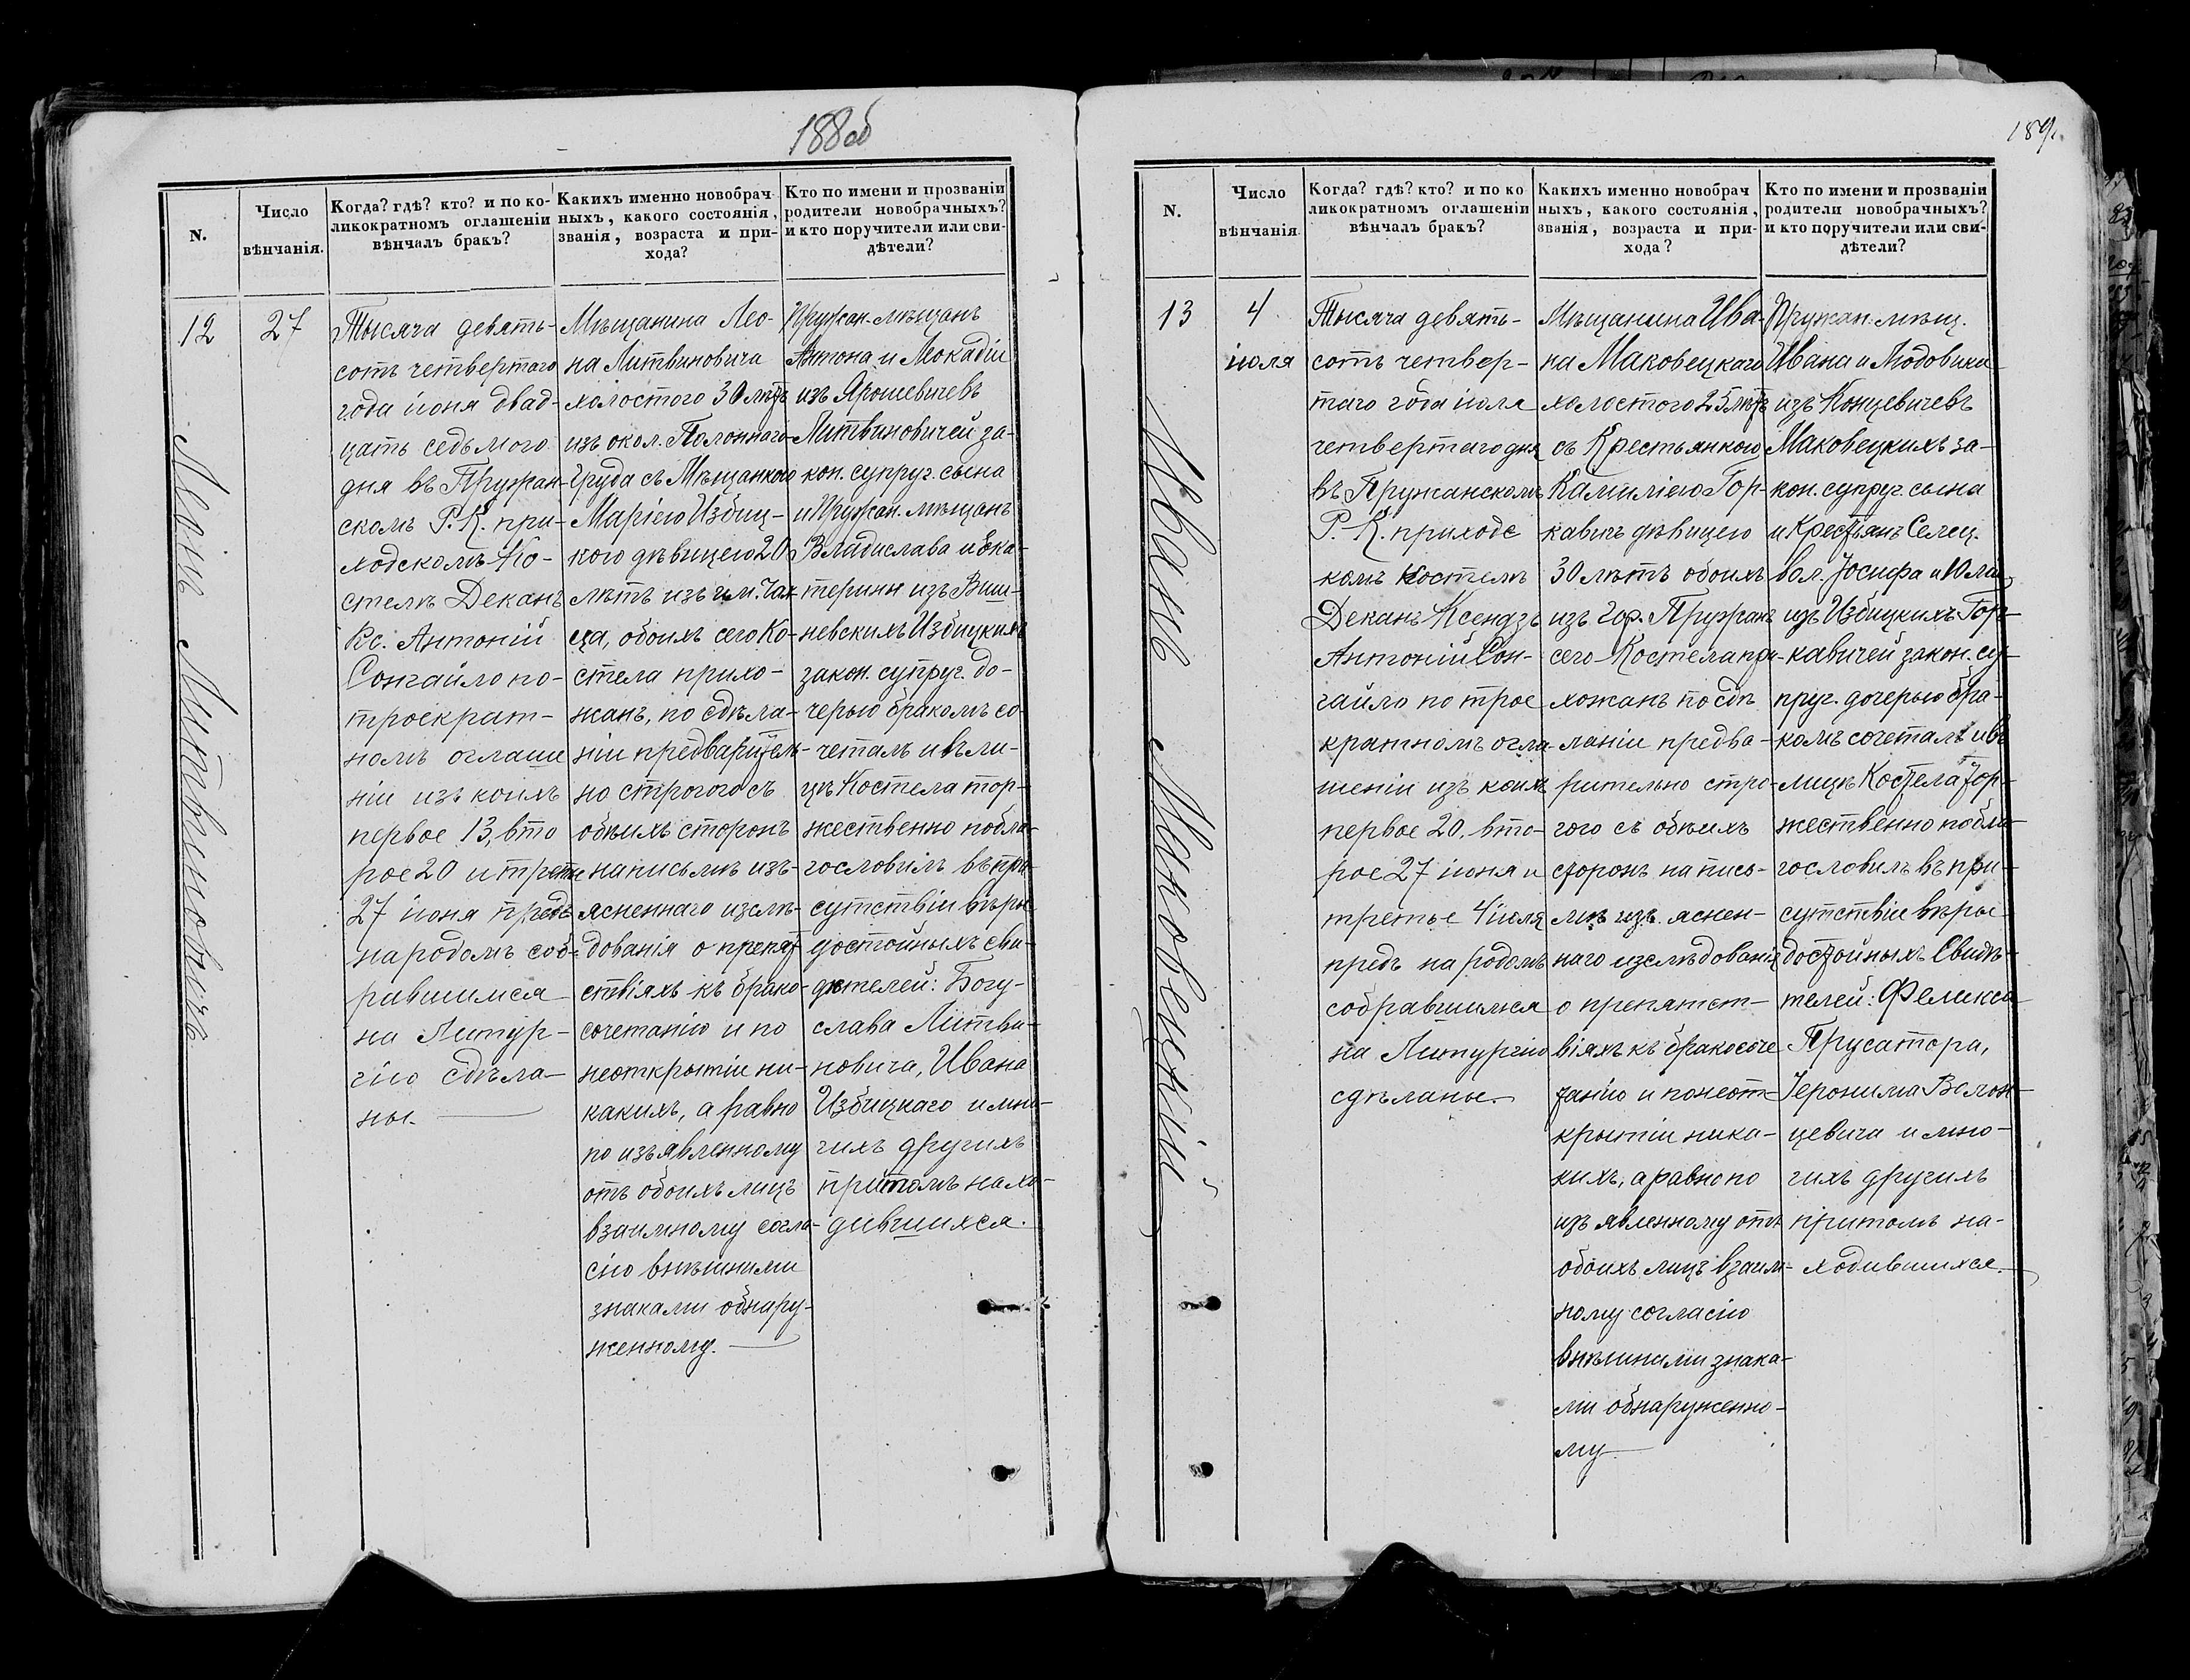 188об
N.
Число
вѣнчанія.
Когда? гдѣ? кто? и по ко-
ликократномъ оглашеніи
вѣнчалъ бракъ?
Какихъ именно новобрач
ныхъ, какого состоянія,
званія, возраста и при-
хода?
Кто по имени и прозваніи
родители новобрачныхъ?
и кто поручители или сви-
дѣтели?
12
27
Леонъ Литвиновичъ
Тысяча девять-
сотъ четвертаго
года іюня двад-
цать седьмого
дня въ Пружан-
скомъ Р. К. при-
ходскомъ Ко-
стелѣ Деканъ
Кс. Антоній
Сонгайло по-
троекрат-
номъ оглаше
ніи изъ коихъ
первое 13, вто
рое 20 и третье
27 іюня предъ
народомъ соб-
равшимся
на Литур-
гію сдѣла-
ны.
Мѣщанина Лео-
на Литвиновича
холостого 30 лѣтъ
изъ окол. Полоннаго-
Груда съ Мѣщанкою
Маріею Избиц-
кою дѣвицею 20
лѣтъ изъ им. Чах
ца, обоихъ сего Ко-
стела прихо-
жанъ, по сдѣла-
ніи предваритель-
но строгого съ
обѣихъ сторонъ
на письмѣ изъ-
ясненнаго изслѣ-
дованія о препят
ствіяхъ къ брако-
сочетанію и по
неоткрытіи ни-
какихъ, а равно
по изъявленному
отъ обоихъ лицъ
взаимному согла-
сію внѣшними
знаками обнару-
женному.
Пружан. мѣщанъ
Антона и Леокадіи
изъ Ярошевичевъ
Литвиновичей за-
кон. супруг. сына
и Пружан. мѣщанъ
Владислава и Ека-
терины изъ Виш-
невскихъ Избицкихъ
закон. супруг. до-
черью бракомъ со-
четалъ и въ ли-
цѣ Костела тор-
жественно побла-
гословилъ въ при-
сутствіи вѣры
достойныхъ сви-
дѣтелей: Богу-
слава Литви-
новича, Ивана
Избицкаго и мно-
гихъ другихъ
притомъ нахо-
дившихся.
189.
N.
Число
вѣнчанія
Когда? гдѣ? кто? и по ко
ликократномъ оглашеніи
вѣнчалъ бракъ?
Какихъ именно новобрач
ныхъ, какого состоянія,
званія, возраста и при-
хода?
Кто по имени и прозваніи
родители новобрачныхъ?
и кто поручители или сви-
дѣтели?
13
4
іюля
Иванъ Маковецкій
Тысяча девять-
сотъ четвер-
таго года іюля
четвертаго дня
въ Пружанскомъ
Р. К. приходс
комъ Костелѣ
Деканъ Ксендзъ
Антоній Сон-
гайло по трое
кратномъ огла-
шеніи изъ коихъ
первое 20, вто-
рое 27 іюня и
третье 4 іюля
предъ народомъ
собравшимся
на Литургію
сдѣланы.
Мѣщанина Ива-
на Маковецкаго
холостого 25 лѣтъ
съ Крестьянкою
Камиліею Гор-
кавичъ дѣвицею
30 лѣтъ обоихъ
изъ гор. Пружанъ
сего Костела при-
хожанъ по сдѣ
ланіи предва-
рительно стро-
гого съ обѣихъ
сторонъ на пись-
мѣ изъ яснен-
наго изслѣдованія
о препятст-
віяхъ къ бракосоче
танію и по неот
крытіи ника-
кихъ, а равно по
изъ явленному отъ
обоихъ лицъ взаим-
ному согласію
внѣшними знака-
ми обнаруженно-
му
Пружан. мѣщ.
Ивана и Людовики
изъ Концевичевъ
Маковецкихъ за-
кон. супруг. сына
и Крестьянъ Селец.
вол. Іосифа и Юліи
изъ Избицкихъ Гор-
кавичей закон. су-
пруг. дочерью бра-
комъ сочеталъ и въ
лицѣ Костела тор-
жественно побла-
гословилъ въ при-
сутствіи вѣры
достойныхъ Свидѣ-
телей: Феликса
Прусатора,
Іеронима Велон-
цевича и мно-
гихъ другихъ
притомъ на-
ходившихся.